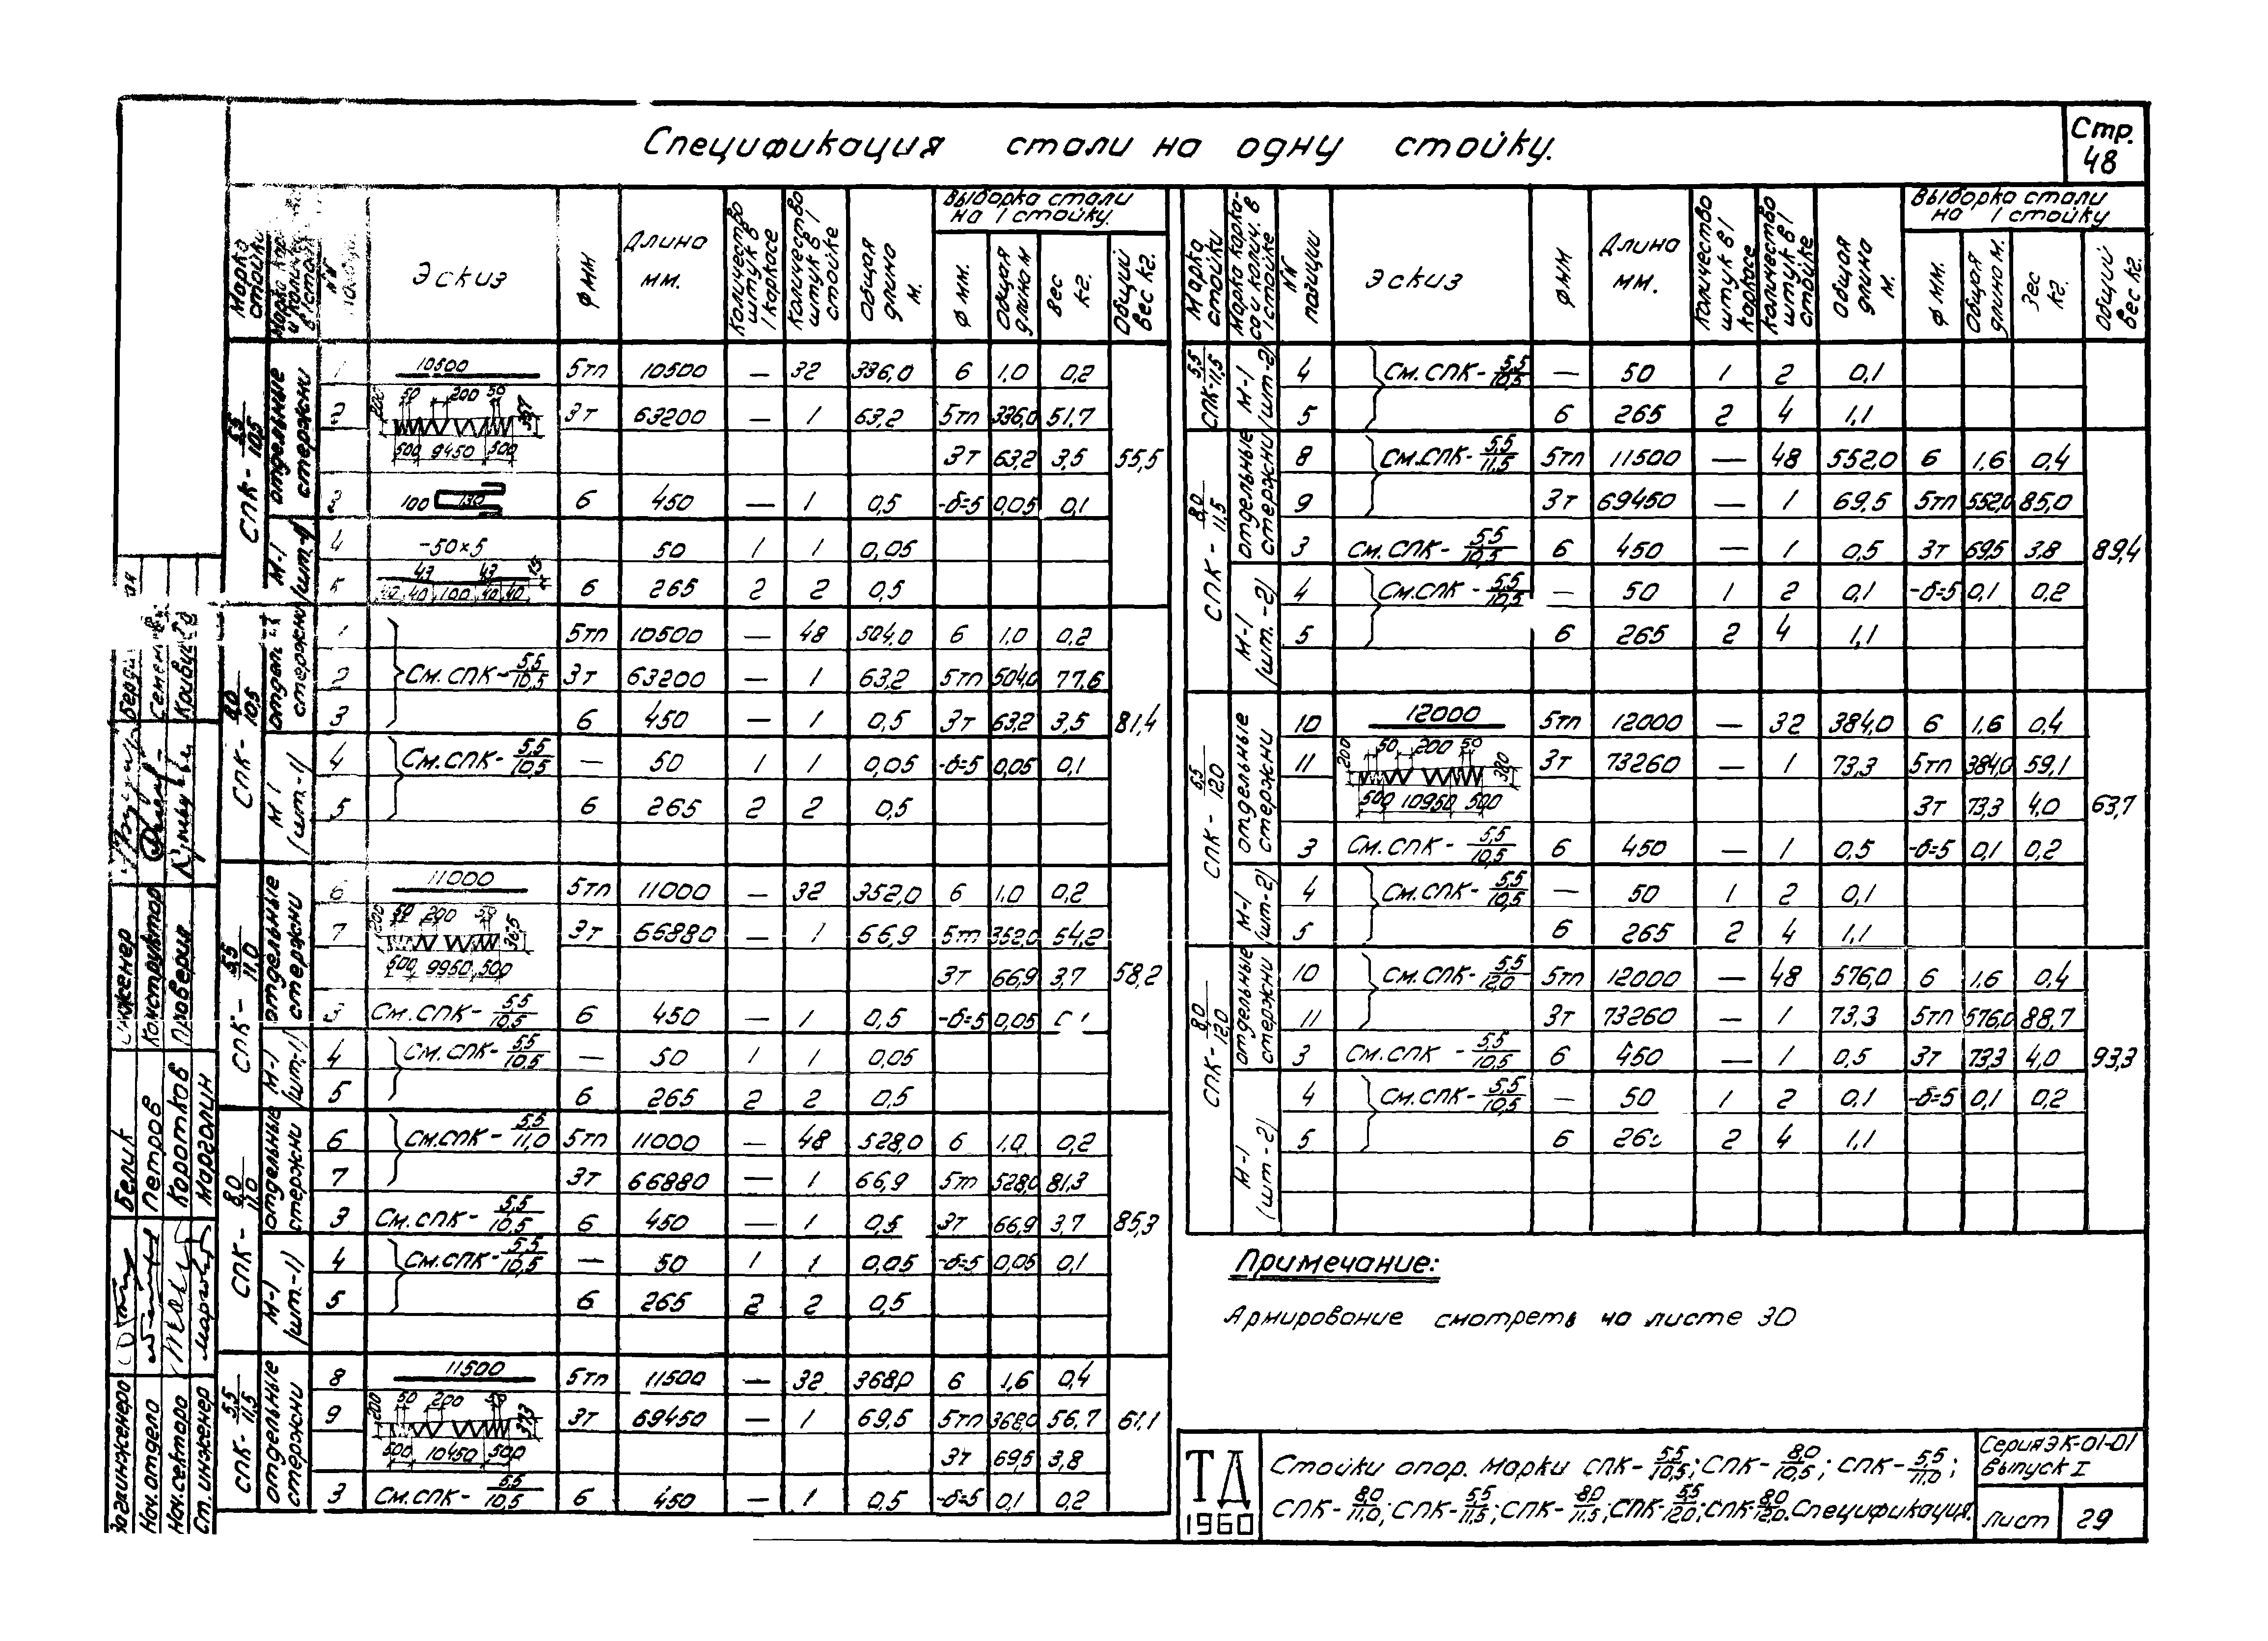 Спецификация стали на одну стойку.
Стр. 48
Марка стойки | № | Эскиз | ф мм | Длина мм. | Количество штук в 1 каркасе | Количество штук в 1 стойке | Общая длина м. | Выборка стали на 1 стойку. | ф мм. | Общая длина м | Вес кг. | Общий вес кг.
СПК-5,5/10,5 | отдельные стержни | 1 | 10500 | 5тп | 10500 | — | 32 | 336,0 | 6 | 1,0 | 0,2
2 | 200 50 200 50 357 500 9450 500 | 3т | 63200 | — | 1 | 63,2 | 5тп | 336,0 | 51,7
3т | 63,2 | 3,5 | 55,5
3 | 100 130 | 6 | 450 | — | 1 | 0,5 | -δ=5 | 0,05 | 0,1
М-1 (шт.-1) | 4 | -50×5 | 50 | 1 | 1 | 0,05
5 | 43 43 15 40 40 100 40 40 | 6 | 265 | 2 | 2 | 0,5
СПК-8,0/10,5 | стержни | 1 | 5тп | 10500 | — | 48 | 504,0 | 6 | 1,0 | 0,2
2 | См. СПК-5,5/10,5 | 3т | 63200 | — | 1 | 63,2 | 5тп | 504,0 | 77,6
3 | 6 | 450 | — | 1 | 0,5 | 3т | 63,2 | 3,5 | 81,4
М-1 (шт.-1) | 4 | См. СПК-5,5/10,5 | — | 50 | 1 | 1 | 0,05 | -δ=5 | 0,05 | 0,1
5 | 6 | 265 | 2 | 2 | 0,5
СПК-5,5/11,0 | отдельные стержни | 6 | 11000 | 5тп | 11000 | — | 32 | 352,0 | 6 | 1,0 | 0,2
7 | 200 50 200 50 365 500 9950 500 | 3т | 66880 | — | 1 | 66,9 | 5тп | 352,0 | 54,2
3т | 66,9 | 3,7 | 58,2
3 | См. СПК-5,5/10,5 | 6 | 450 | — | 1 | 0,5 | -δ=5 | 0,05
М-1 (шт-1) | 4 | См. СПК-5,5/10,5 | — | 50 | 1 | 1 | 0,05
5 | 6 | 265 | 2 | 2 | 0,5
СПК-8,0/11,0 | отдельные стержни | 6 | См.СПК-5,5/11,0 | 5тп | 11000 | — | 48 | 528,0 | 6 | 1,0 | 0,2
7 | 3т | 66880 | — | 1 | 66,9 | 5тп | 528,0 | 81,3
3 | См. СПК-5,5/10,5 | 6 | 450 | — | 1 | 0,5 | 3т | 66,9 | 3,7 | 85,3
М-1 (шт.-1) | 4 | См.СПК-5,5/10,5 | — | 50 | 1 | 1 | 0,05 | -δ=5 | 0,05 | 0,1
5 | 6 | 265 | 2 | 2 | 0,5
СПК-5,5/11,5 | отдельные стержни | 8 | 11500 | 5тп | 11500 | — | 32 | 368,0 | 6 | 1,6 | 0,4
9 | 200 50 200 50 373 500 10450 500 | 3т | 69450 | — | 1 | 69,5 | 5тп | 368,0 | 56,7 | 61,1
3т | 69,5 | 3,8
3 | См.СПК-5,5/10,5 | 6 | 450 | — | 1 | 0,5 | -δ=5 | 0,1 | 0,2
Марка стойки | Марка карка-са и колич. в 1 стойке | №№ позиции | Эскиз | ф мм | Длина мм. | Количество штук в 1 каркасе | Количество штук в 1 стойке | Общая длина м. | Выборка стали на 1 стойку | ф мм. | Общая длина м. | Вес кг. | Общий вес кг.
СПК-5,5/11,5 | М-1 (шт-2) | 4 | См.СПК-5,5/10,5 | — | 50 | 1 | 2 | 0,1
5 | 6 | 265 | 2 | 4 | 1,1
СПК-8,0/11,5 | отдельные стержни | 8 | См.СПК-5,5/11,5 | 5тп | 11500 | — | 48 | 552,0 | 6 | 1,6 | 0,4
9 | 3т | 69450 | — | 1 | 69,5 | 5тп | 552,0 | 85,0
3 | См.СПК-5,5/10,5 | 6 | 450 | — | 1 | 0,5 | 3т | 69,5 | 3,8 | 89,4
М-1 (шт.-2) | 4 | См.СПК-5,5/10,5 | — | 50 | 1 | 2 | 0,1 | -δ=5 | 0,1 | 0,2
5 | 6 | 265 | 2 | 4 | 1,1
СПК-5,5/12,0 | отдельные стержни | 10 | 12000 | 5тп | 12000 | — | 32 | 384,0 | 6 | 1,6 | 0,4
11 | 200 50 200 50 380 500 10950 500 | 3т | 73260 | — | 1 | 73,3 | 5тп | 384,0 | 59,1
3т | 73,3 | 4,0 | 63,7
3 | См. СПК-5,5/10,5 | 6 | 450 | — | 1 | 0,5 | -δ=5 | 0,1 | 0,2
М-1 (шт-2) | 4 | См.СПК-5,5/10,5 | — | 50 | 1 | 2 | 0,1
5 | 6 | 265 | 2 | 4 | 1,1
СПК-8,0/12,0 | отдельные стержни | 10 | См.СПК-5,5/12,0 | 5тп | 12000 | — | 48 | 576,0 | 6 | 1,6 | 0,4
11 | 3т | 73260 | — | 1 | 73,3 | 5тп | 576,0 | 88,7
3 | См.СПК-5,5/10,5 | 6 | 450 | — | 1 | 0,5 | 3т | 73,3 | 4,0 | 93,3
М-1 (шт-2) | 4 | См.СПК-5,5/10,5 | — | 50 | 1 | 2 | 0,1 | -δ=5 | 0,1 | 0,2
5 | 6 | 2 | 4 | 1,1
Примечание:
Армирование смотреть на листе 30
ТД 1960
Стойки опор. Марки СПК-5,5/10,5; СПК-8,0/10,5; СПК-5,5/11,0;
СПК-8,0/11,0; СПК-5,5/11,5; СПК-8,0/11,5; СПК-5,5/12,0; СПК-8,0/12,0. Спецификация.
Серия ЭК-01-01
Выпуск I
Лист 29
Нач. отдела Петров Конструктор
Нач. сектора Коротков Проверил
Ст. инженер Марголин
Белик